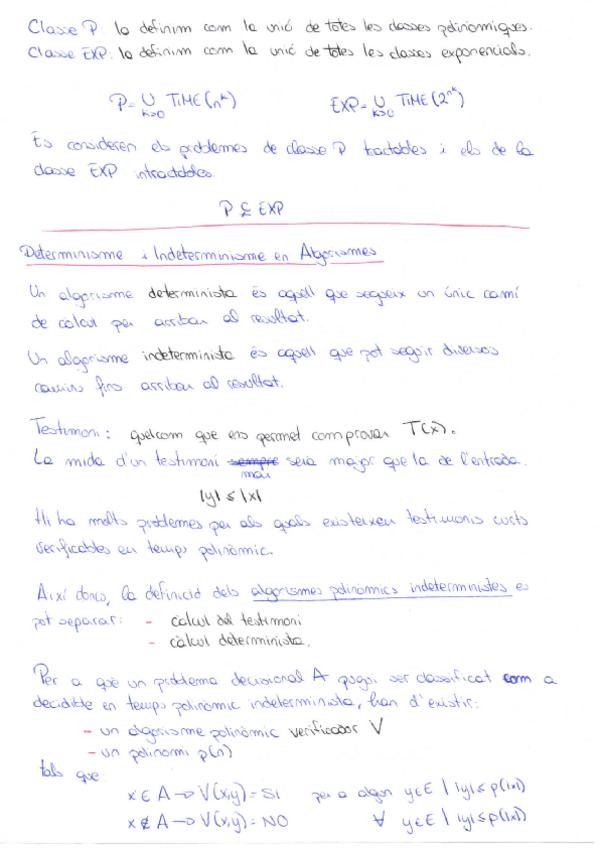 Classe P: la definim com la unió de totes les classes polinòmiques.
Classe EXP: la definim com la unió de totes les classes exponencials.
P = ∪ TIME(n^k) EXP = ∪ TIME(2^n^k)
k>0 k>0
Es consideren els problemes de classe P tractables i els de la
classe EXP intractables.
P ⊊ EXP
Determinisme i Indeterminisme en Algorismes
Un algorisme determinista és aquell que segueix un únic camí
de càlcul per arribar al resultat.
Un algorisme indeterminista és aquell que pot seguir diversos
camins fins arribar al resultat.
Testimoni: quelcom que ens permet comprovar T(x).
La mida d'un testimoni sempre serà major que la de l'entrada.
mai
|y| ≤ |x|
Hi ha molts problemes per als quals existeixen testimonis curts
verificables en temps polinòmic.
Així doncs, la definició dels algorismes polinòmics indeterministes es
pot separar: - càlcul del testimoni
- càlcul determinista.
Per a què un problema decisional A pugui ser classificat com a
decidible en temps polinòmic indeterminista, han d'existir:
- un algorisme polinòmic verificador V
- un polinomi p(n)
tals que
x ∈ A → V(x,y) = SI per a algun y ∈ E | |y| ≤ p(|x|)
x ∉ A → V(x,y) = NO ∀ y ∈ E | |y| ≤ p(|x|)